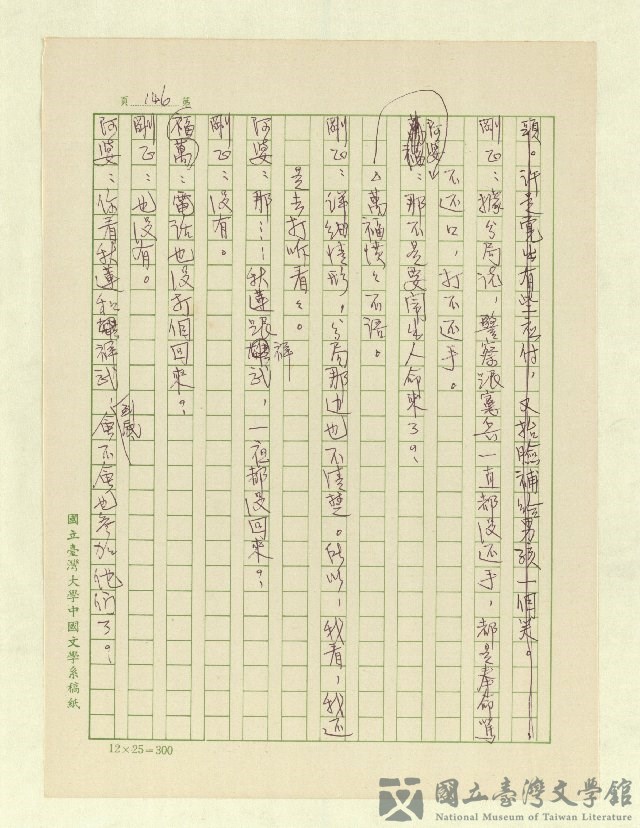 頁 146 第
頭。許是覺出有些不忖，又抬臉補給男孩一個笑。——
剛正：據分局說，警察派憲兵一直都沒还手，都是奉命罵
不还口，打不还手。
阿婆：那不是要鬧出人命來了？
△萬福憤憤不語。
剛正：详細情形，分局那边也不清楚。所以，我看，我还
是去打听看看。
阿婆：那……秋蓮、祥武，一夜都沒回來？
剛正：沒有。
福萬：電話也沒打個回來？
剛正：也沒有。
阿婆：你看秋蓮和祥武，會不會也參加他們了？
國立臺灣大學中國文學系稿紙
12×25=300
國立臺灣文學館
National Museum of Taiwan Literature